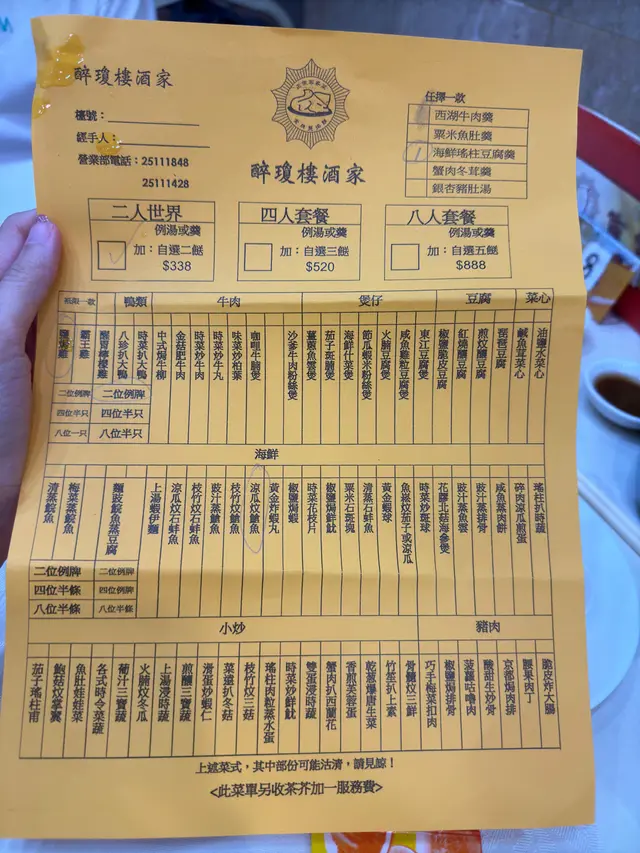 醉瓊樓酒家
檯號：
經手人：
營業部電話：25111848
25111428
醉瓊樓酒家
任擇一款
西湖牛肉羹
粟米魚肚羹
海鮮瑤柱豆腐羹
蟹肉冬茸羹
銀杏豬肚湯
二人世界
例湯或羹
加：自選二餸
$338
四人套餐
例湯或羹
加：自選三餸
$520
八人套餐
例湯或羹
加：自選五餸
$888
祗限一款
鴨類
牛肉
煲仔
豆腐
菜心
鹽焗雞
霸王雞
醒胃檸檬雞
八珍扒大鴨
時菜扒大鴨
中式焗牛柳
金菇肥牛肉
時菜炒牛肉
時菜炒牛丸
味菜炒柏葉
咖喱牛腩煲
沙爹牛肉粉絲煲
薑蔥魚雲煲
茄子斑腩煲
海鮮什菜煲
節瓜蝦米粉絲煲
火腩豆腐煲
咸魚雞粒豆腐煲
東江豆腐煲
椒鹽脆皮豆腐
紅燒釀豆腐
煎炆釀豆腐
琵琶豆腐
鹹魚茸菜心
油鹽水菜心
二位例牌
二位例牌
四位半只
四位半只
八位一只
八位半只
海鮮
清蒸鯇魚
梅菜蒸鯇魚
麵豉鯇魚蒸豆腐
上湯蝦伊麵
涼瓜炆石蚌魚
枝竹炆石蚌魚
豉汁蒸鱠魚
枝竹炆鱠魚
涼瓜炆鱠魚
黃金炸蝦丸
椒鹽焗蝦
時菜花枝片
椒鹽焗鮮魷
粟米石斑塊
清蒸石蚌魚
黃金蝦球
魚崧炆茄子或涼瓜
時菜炒斑球
花膠北菇海參煲
豉汁蒸魚雲
豉汁蒸排骨
咸魚蒸肉餅
碎肉涼瓜煎蛋
瑤柱扒時蔬
二位例牌
二位例牌
四位半條
四位例牌
八位半條
八位半條
小炒
豬肉
茄子瑤柱甫
鮑菇炆掌翼
魚肚娃娃菜
各式時令菜蔬
葡汁三寶蔬
火腩炆冬瓜
上湯浸時蔬
煎釀三寶蔬
滑蛋炒蝦仁
菜遠扒冬菇
枝竹炆三菇
瑤柱肉粒蒸水蛋
時菜炒鮮魷
雙蛋浸時蔬
蟹肉扒西蘭花
香煎芙蓉蛋
乾蔥爆唐生菜
竹笙扒上素
骨髓炆三鮮
巧手梅菜扣肉
椒鹽焗排骨
菠蘿咕嚕肉
酸甜生炒骨
京都焗肉排
腰果肉丁
脆皮炸大腸
上述菜式，其中部份可能沽清，請見諒！
<此菜單另收茶芥加一服務費>
8